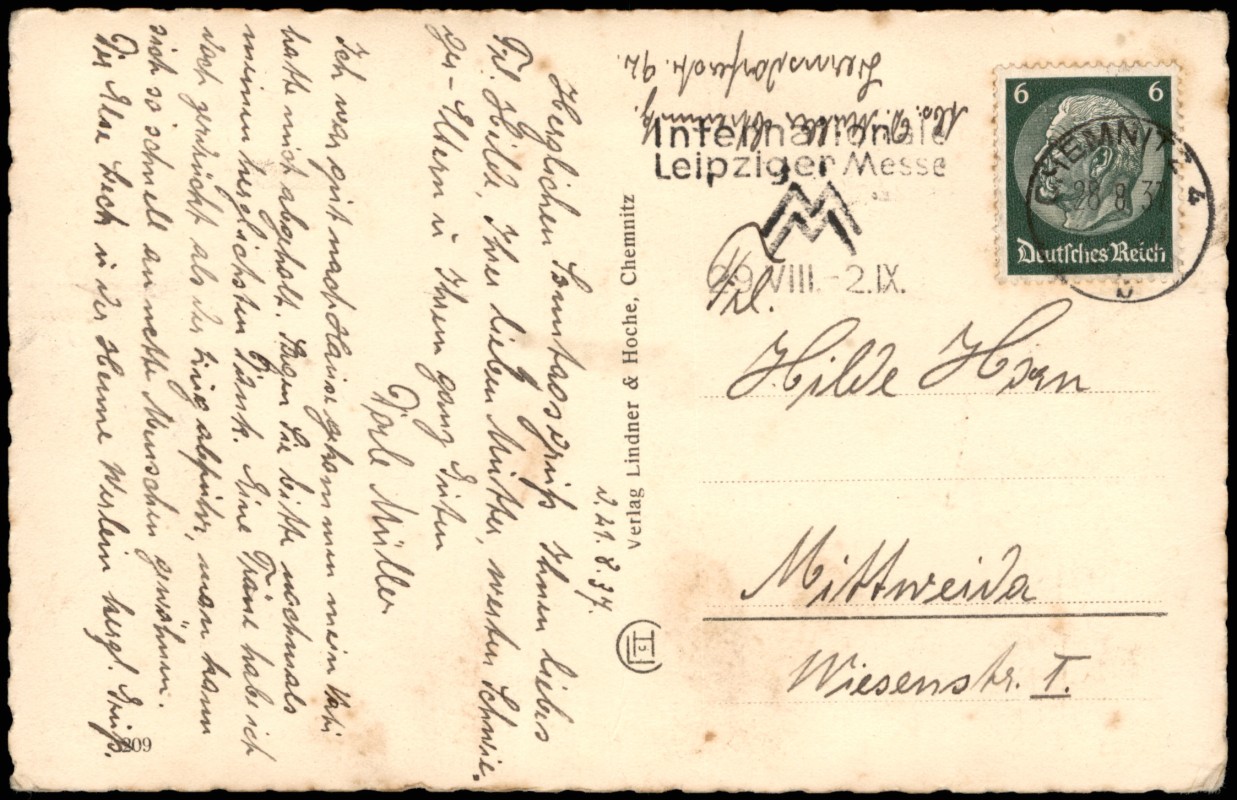 d. 27. 8. 37.
Herzlichen Sonntagsgruß Ihnen liebes
Frl. Hilde, Ihrer lieben Mutter, werten Schwie-
ger-Eltern u. Ihrem ganz Guten
Dorle Müller
Ich war gut nach Hause gekommen mein Vati
hatte mich abgeholt. Sagen Sie bitte nochmals
meinen herzlichsten Dank. Eine Träne habe ich
doch zerdrückt als der Zug abfuhr, man kann
sich so schnell an nette Menschen gewöhnen.
Der Else Heck u. der Hanne herzl. Gruß.
Abs. D. Müller, Chemnitz.
92.
Internationale
Leipziger Messe
M
29.VIII.-2.IX.
6 6
Deutsches Reich
CHEMNITZ 4
28.8.37
b
Frl.
Hilde Horn
Mittweida
Wiesenstr. I.
Verlag Lindner & Hoche, Chemnitz
3209